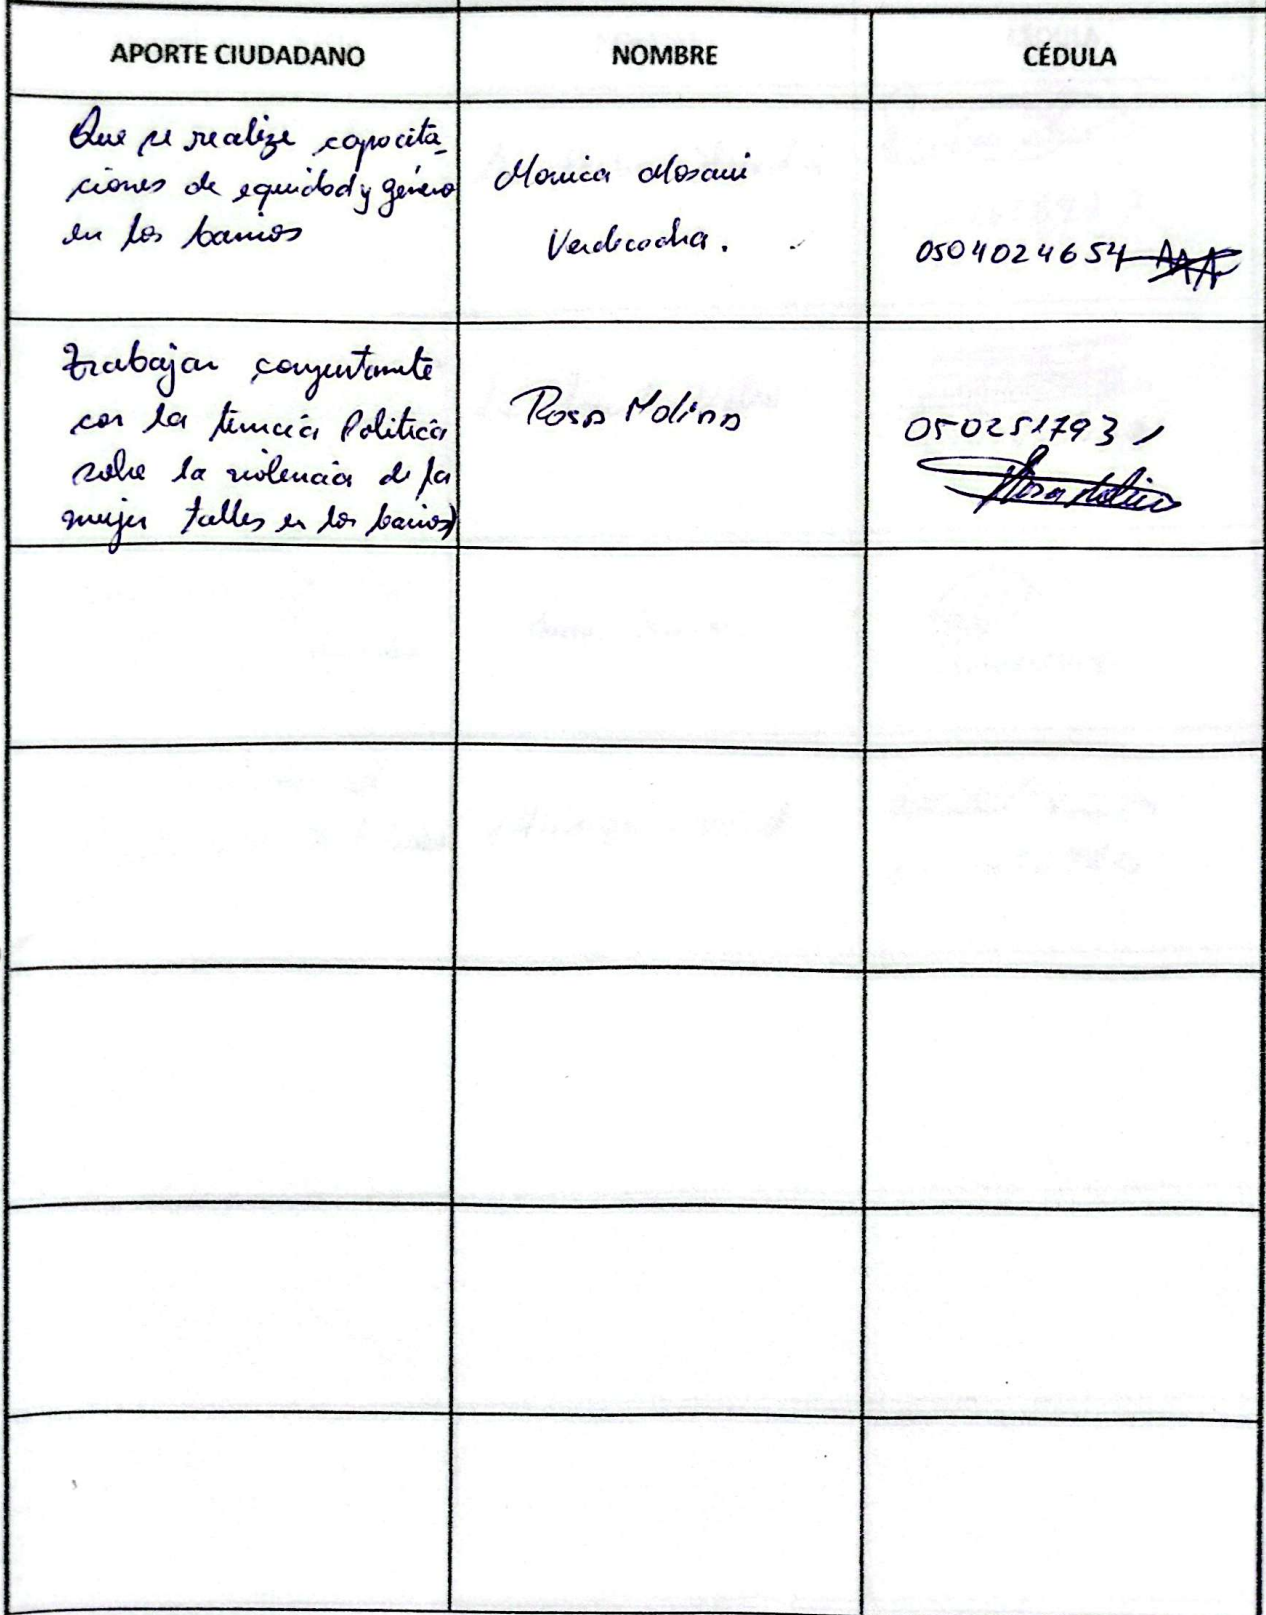 APORTE CIUDADANO NOMBRE CÉDULA
Que se realize capacita-
ciones de equidad y género
en los barrios
Monica
Verdecocha.
0504024654
trabajar conjuntamite
con la tenncia Politica
sobre la violencia de la
mujer talles en los barios)
Rosa Molina
0502517931
Rosa Molina